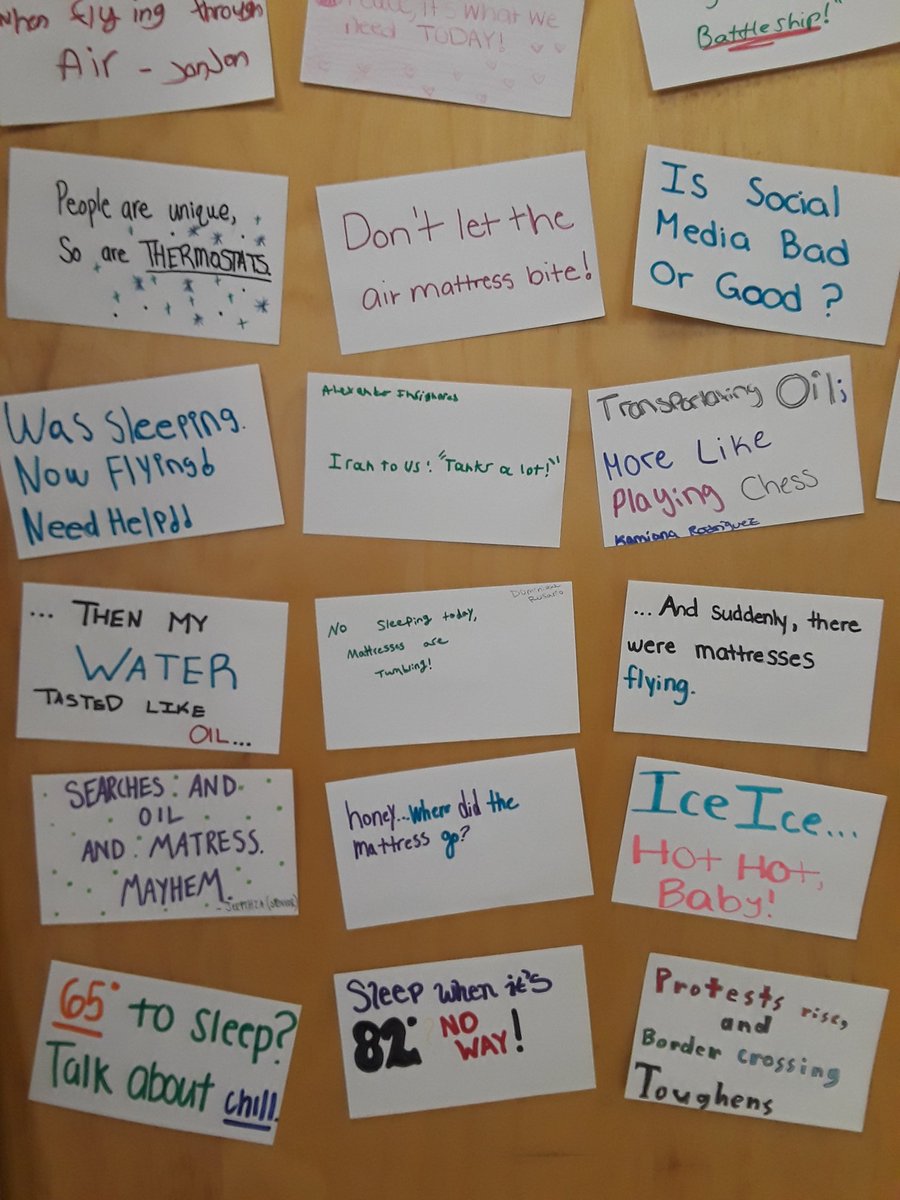 when flying through
Air - JonJon
it's what we
need TODAY!
Battleship!"
People are unique,
So are THERMOSTATS.
Don't let the
air mattress bite!
Is Social
Media Bad
Or Good?
Was Sleeping.
Now Flying!
Need Help!!
Alexander
Iran to US: "Tanks a lot!"
Transportaying Oil;
More Like
Playing Chess
Kamiana Rodriguez
... THEN MY
WATER
TASTED LIKE
OIL...
Duminian
Rosario
No Sleeping today,
Mattresses are
Tumbling!
... And suddenly, there
were mattresses
flying.
SEARCHES AND
OIL
AND MATRESS
MAYHEM.
honey...Where did the
mattress go?
Ice Ice...
Hot Hot,
Baby!
65° to sleep?
Talk about chill.
Sleep when it's
82° NO
WAY!
Protests rise,
and
Border crossing
Toughens